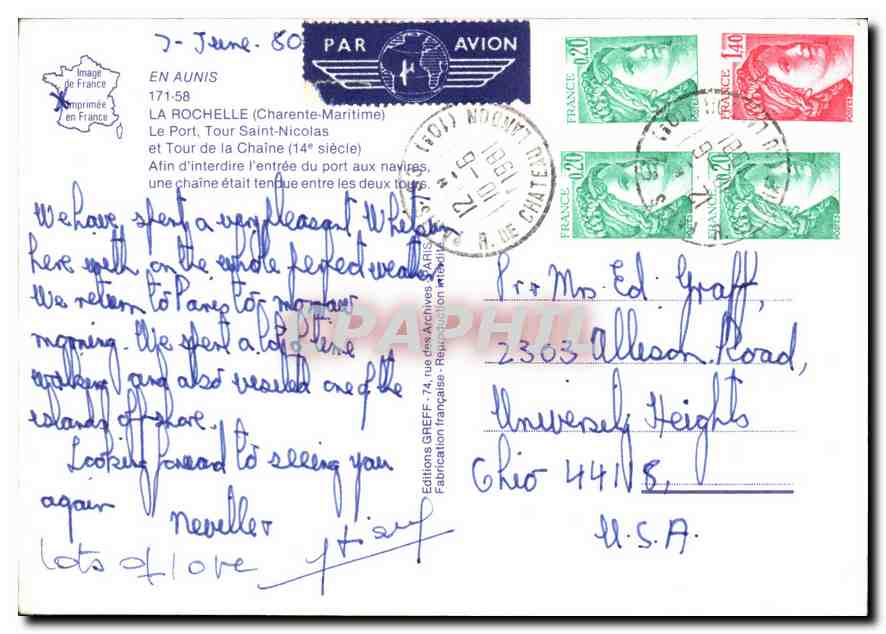 7- June - 80
PAR AVION
Image
de France
imprimée
en France
EN AUNIS
171-58
LA ROCHELLE (Charente-Maritime)
Le Port, Tour Saint-Nicolas
et Tour de la Chaîne (14e siècle)
Afin d'interdire l'entrée du port aux navires,
une chaîne était tendue entre les deux tours.
We have spent a very pleasant Whitsun
here with on the whole perfect weather
We return to Paris to-morrow
morning. We spent a lot of time
walking and also visited one of the
islands off shore.
Looking forward to seeing you
again
Neville +
lots of love
Editions GREFF - 74, rue des Archives - PARIS
Fabrication française - Reproduction interdite
0,20 FRANCE POSTES
1,40 FRANCE POSTES
0,20 FRANCE
0,20 FRANCE POSTES
R. DE CHATEAU LANDON (10e)
12 H
10-6
1981
Pr + Mrs. Ed. Graff,
2303 Allison Road,
University Heights
Ohio 44118,
U.S.A.
APAPHIL